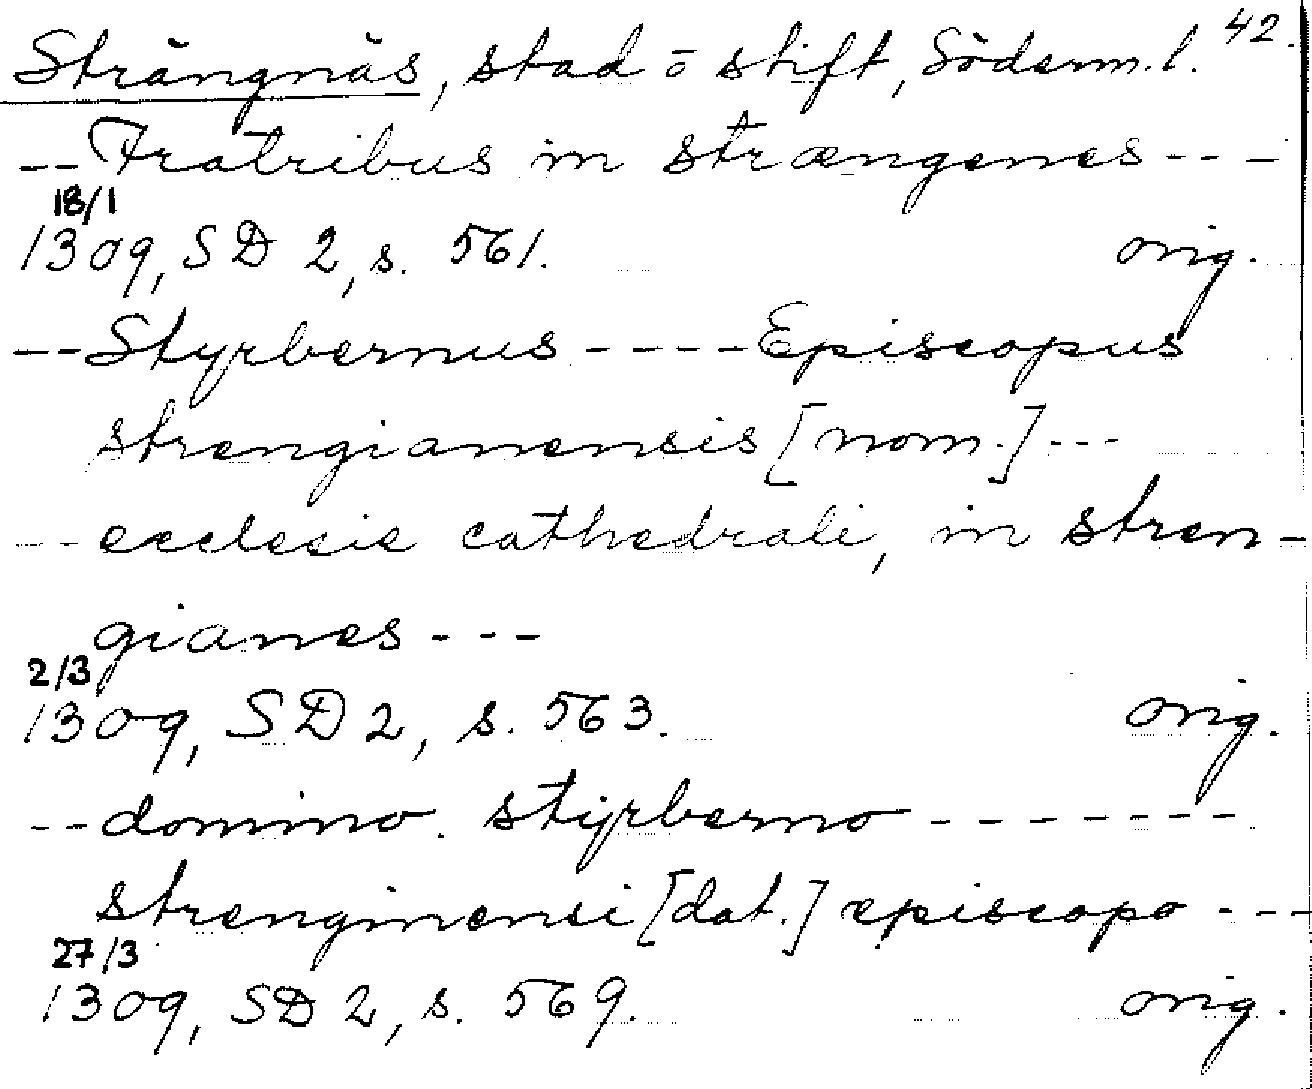 Strängnäs, stad o stift, Söderm.l. 42.
-- Fratribus in strængenes ---
18/1
1309, SD 2, s. 561. orig.
-- Styrbernus ---- Episcopus
strengianensis [nom.] ---
-- ecclesie cathedrali, in stren-
gianes ---
2/3
1309, SD 2, s. 563. orig.
-- domino. stijrberno -------
strenginensi [dat.] episcopo ---
27/3
1309, SD 2, s. 569. orig.